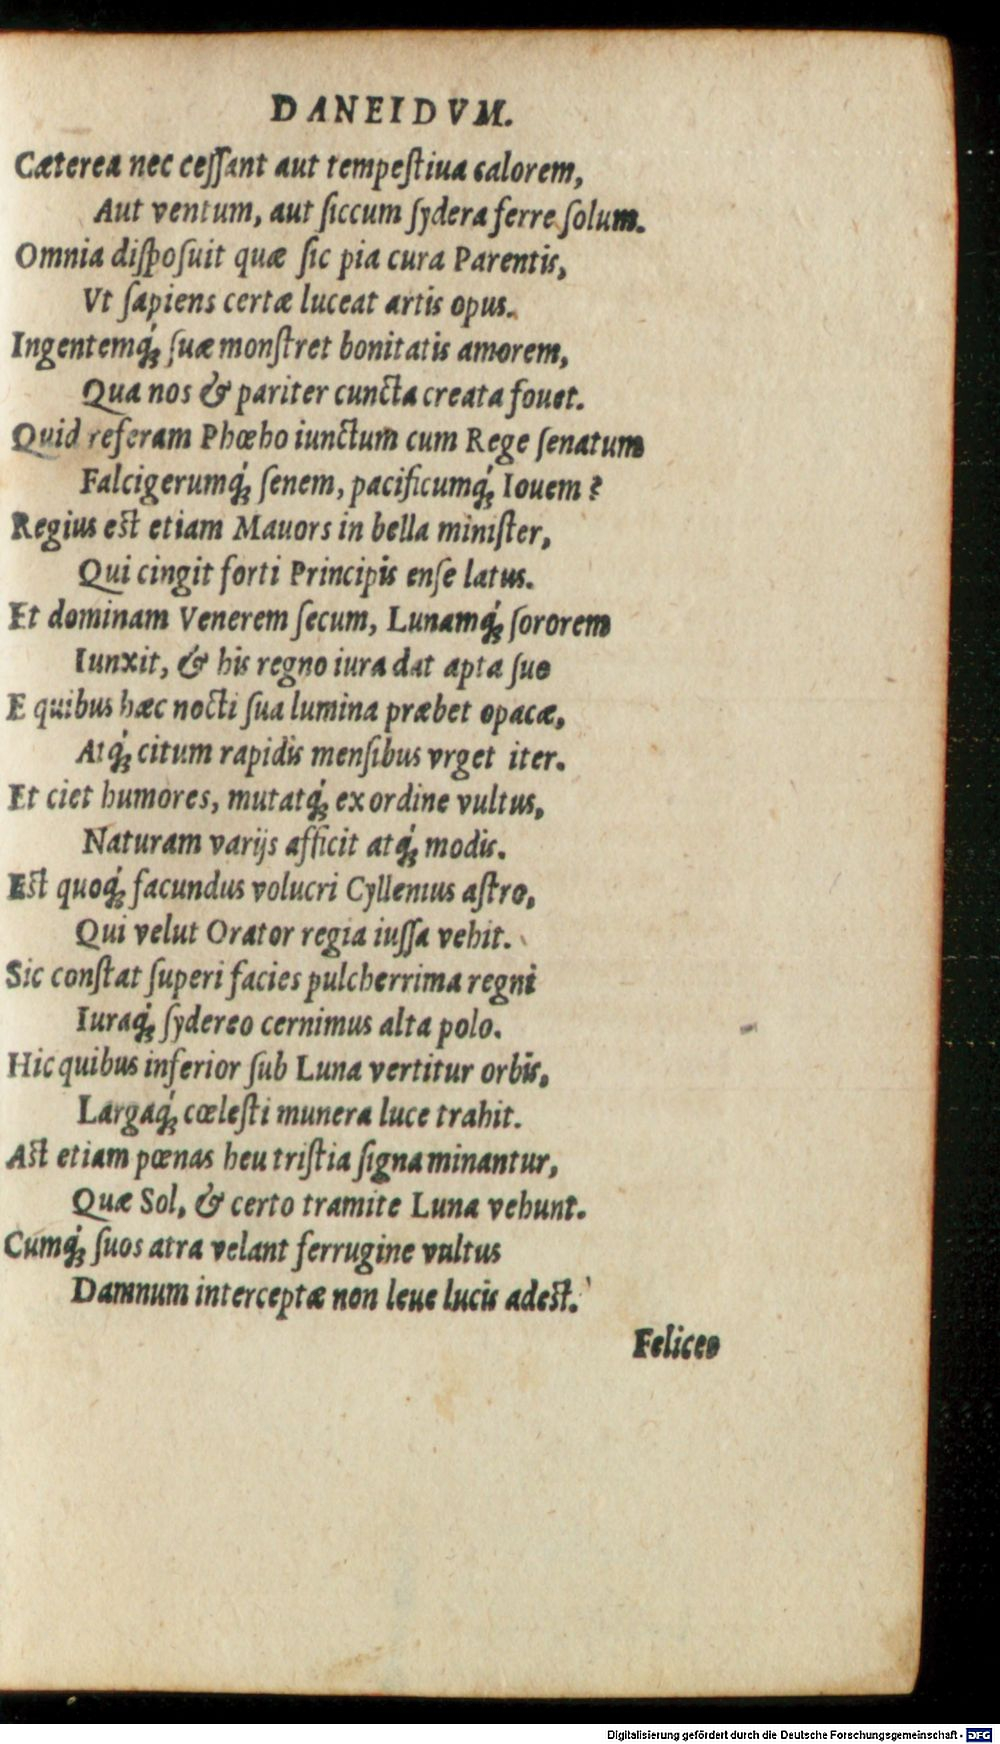 DANEIDVM.
Cæterea nec ceſſant aut tempeſtiua calorem,
Aut ventum, aut ſiccum ſydera ferre ſolum.
Omnia diſpoſuit quæ ſic pia cura Parentis,
Vt ſapiens certæ luceat artis opus.
Ingentemq́ꝫ ſuæ monſtret bonitatis amorem,
Qua nos & pariter cuncta creata fouet.
Quid referam Phœbo iunctum cum Rege ſenatum
Falcigerumq́ꝫ ſenem, pacificumq́ꝫ Iouem?
Regius est etiam Mauors in bella miniſter,
Qui cingit forti Principis enſe latus.
Et dominam Venerem ſecum, Lunamq́ꝫ ſororem
Iunxit, & his regno iura dat apta ſuo
E quibus hæc nocti ſua lumina præbet opacæ,
Atq́ꝫ citum rapidis menſibus vrget iter.
Et ciet humores, mutatq́ꝫ ex ordine vultus,
Naturam varijs afficit atq́ꝫ modis.
Est quoq́ꝫ facundus volucri Cyllenius aſtro,
Qui velut Orator regia iuſſa vehit.
Sic conſtat ſuperi facies pulcherrima regni
Iuraq́ꝫ ſydereo cernimus alta polo.
Hic quibus inferior ſub Luna vertitur orbis,
Largaq́ꝫ cœleſti munera luce trahit.
Ast etiam pœnas heu triſtia ſigna minantur,
Quæ Sol, & certo tramite Luna vehunt.
Cumq́ꝫ ſuos atra velant ferrugine vultus
Damnum interceptæ non leue lucis adest.
Felices
Digitalisierung gefördert durch die Deutsche Forschungsgemeinschaft - DFG